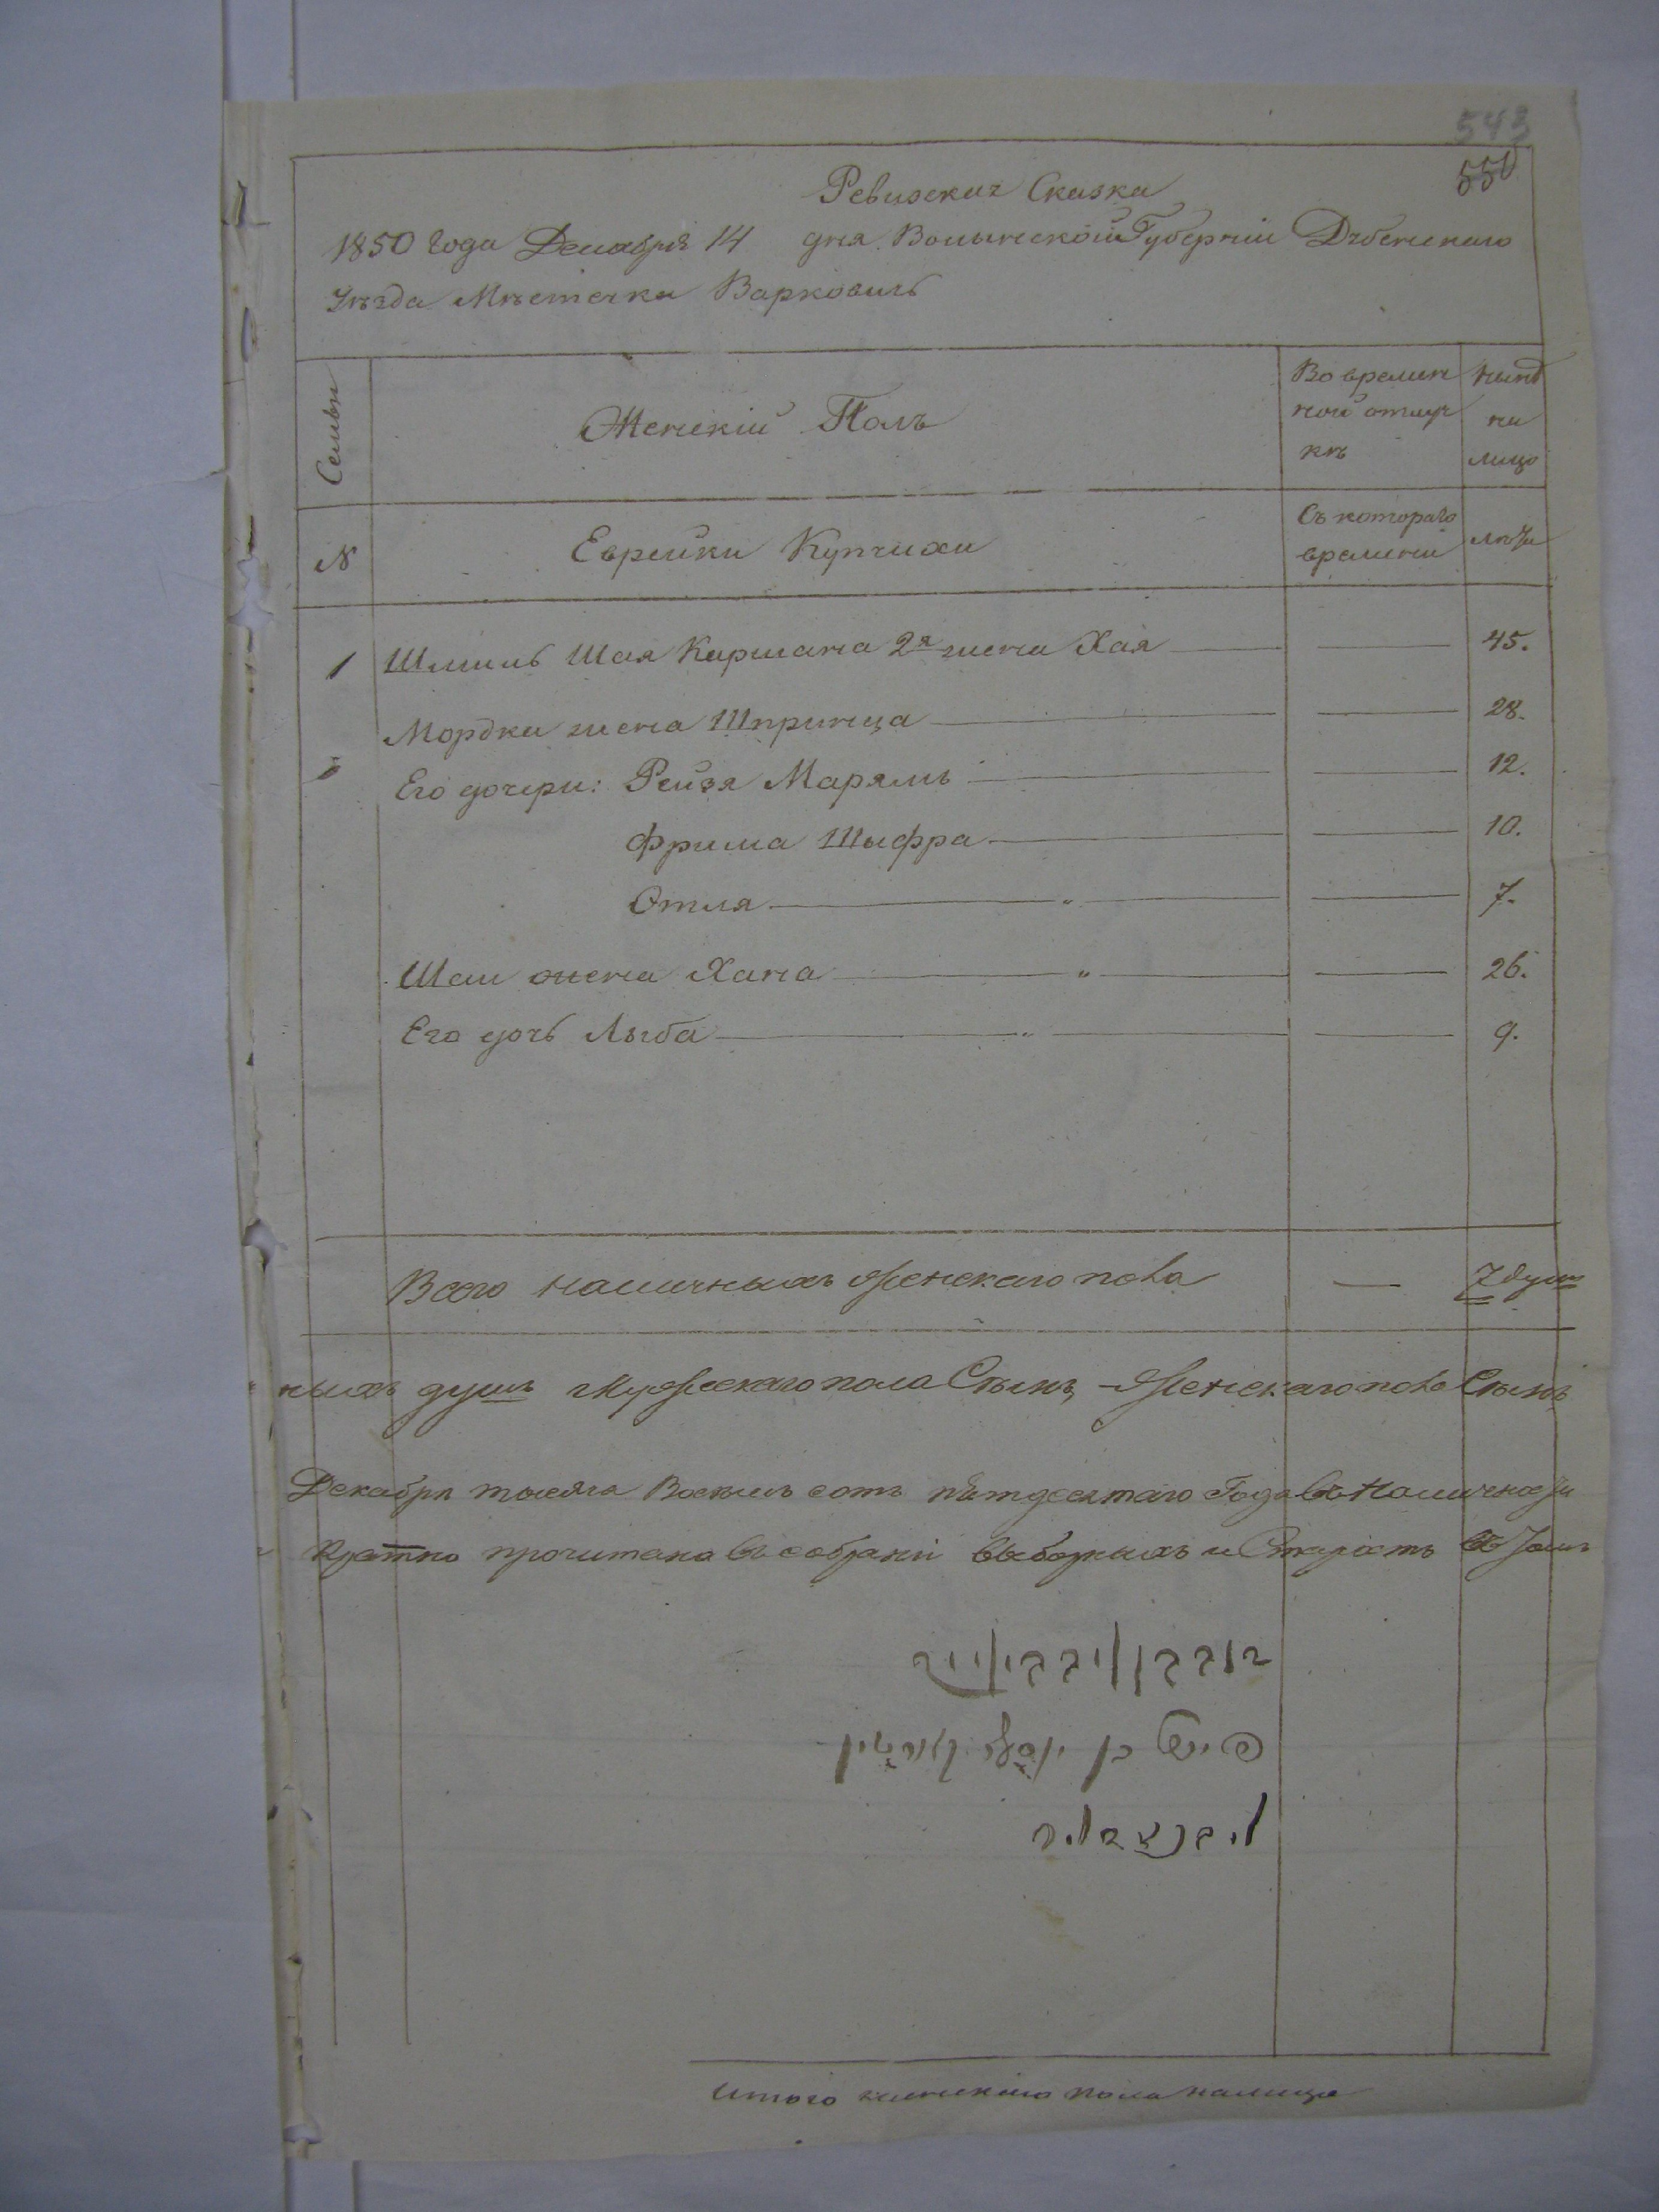 543
550
Ревизская Сказка
1850 Года Декабря 14 дня Волынской Губерніи Дубенскаго
Уѣзда Мѣстечка Варковичь
Семьи
Женскій Полъ
Во времен
ной отлуч
кѣ
Нынѣ
на
лицо
№
Еврейки Купчихи
Съ котораго
времени
лѣта
1 Шмиль Шая Кармана 2я жена Хая 45.
Мордки жена Шпринца 28.
Его дочери: Рейзя Марямъ 12.
Фрима Шыфра 10.
Отля " 7.
Шаи жена Хана " 26.
Его дочь Лыба " 9.
Всего наличныхъ женскаго пола 7 душъ
ныхъ душъ Мужескаго пола Семь, Женскаго пола Семь
Декабря тысяча Восемь сотъ пятдесятаго Года въ наличности
кратно прочитана въ собраніи выборныхъ и Старость
פישל בן יוסף
Итого женскаго пола налицо